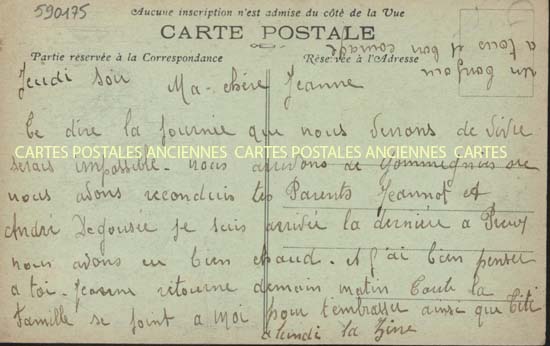 590175
Aucune inscription n'est admise du côté de la Vue
CARTE POSTALE
Partie réservée à la Correspondance
Réservée à l'Adresse
un bonjour
a tous et bon courage
Jeudi Soir Ma chère Jeanne
Te dire la journée que nous venons de vivre
CARTES POSTALES ANCIENNES CARTES POSTALES ANCIENNES CARTES
serais impossible. nous arrivons de Gommegnies ou
nous avons reconduis tes Parents Jeannot et
André Degousée je suis arrivée la dernière a Preux
nous avons eu bien chaud. et j'ai bien penser
a toi. Jeanne retourne demain matin toute la
famille se joint a moi pour t'embrasser ainsi que Titi
a lundi la Zine